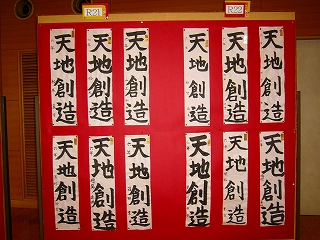 R21
R22
天地創造
天地創造
天地創造
天地創造
天地創造
天地創造
天地創造
天地創造
天地創造
天地創造
天地創造
天地創造